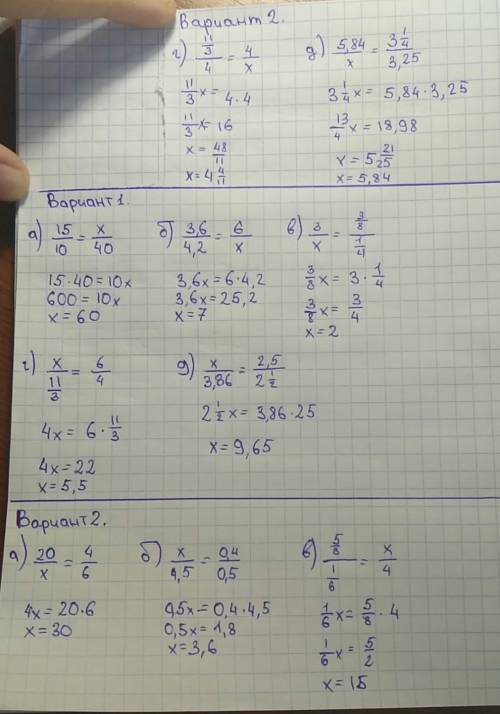 Вариант 2.
г) 11/3 / 4 = 4/x
11/3 x = 4·4
11/3 x = 16
x = 48/11
x = 4 4/11
д) 5,84/x = 3 1/4 / 3,25
3 1/4 x = 5,84·3,25
13/4 x = 18,98
x = 5 21/25
x = 5,84
Вариант 1.
а) 15/10 = x/40
15·40 = 10x
600 = 10x
x = 60
б) 3,6/4,2 = 6/x
3,6x = 6·4,2
3,6x = 25,2
x = 7
в) 3/x = 3/8 / 1/4
3/8 x = 3·1/4
3/8 x = 3/4
x = 2
г) x / 11/3 = 6/4
4x = 6·11/3
4x = 22
x = 5,5
д) x/3,86 = 2,5 / 2 1/2
2 1/2 x = 3,86·25
x = 9,65
Вариант 2.
а) 20/x = 4/6
4x = 20·6
x = 30
б) x/4,5 = 0,4/0,5
0,5x = 0,4·4,5
0,5x = 1,8
x = 3,6
в) 5/8 / 1/6 = x/4
1/6 x = 5/8·4
1/6 x = 5/2
x = 15